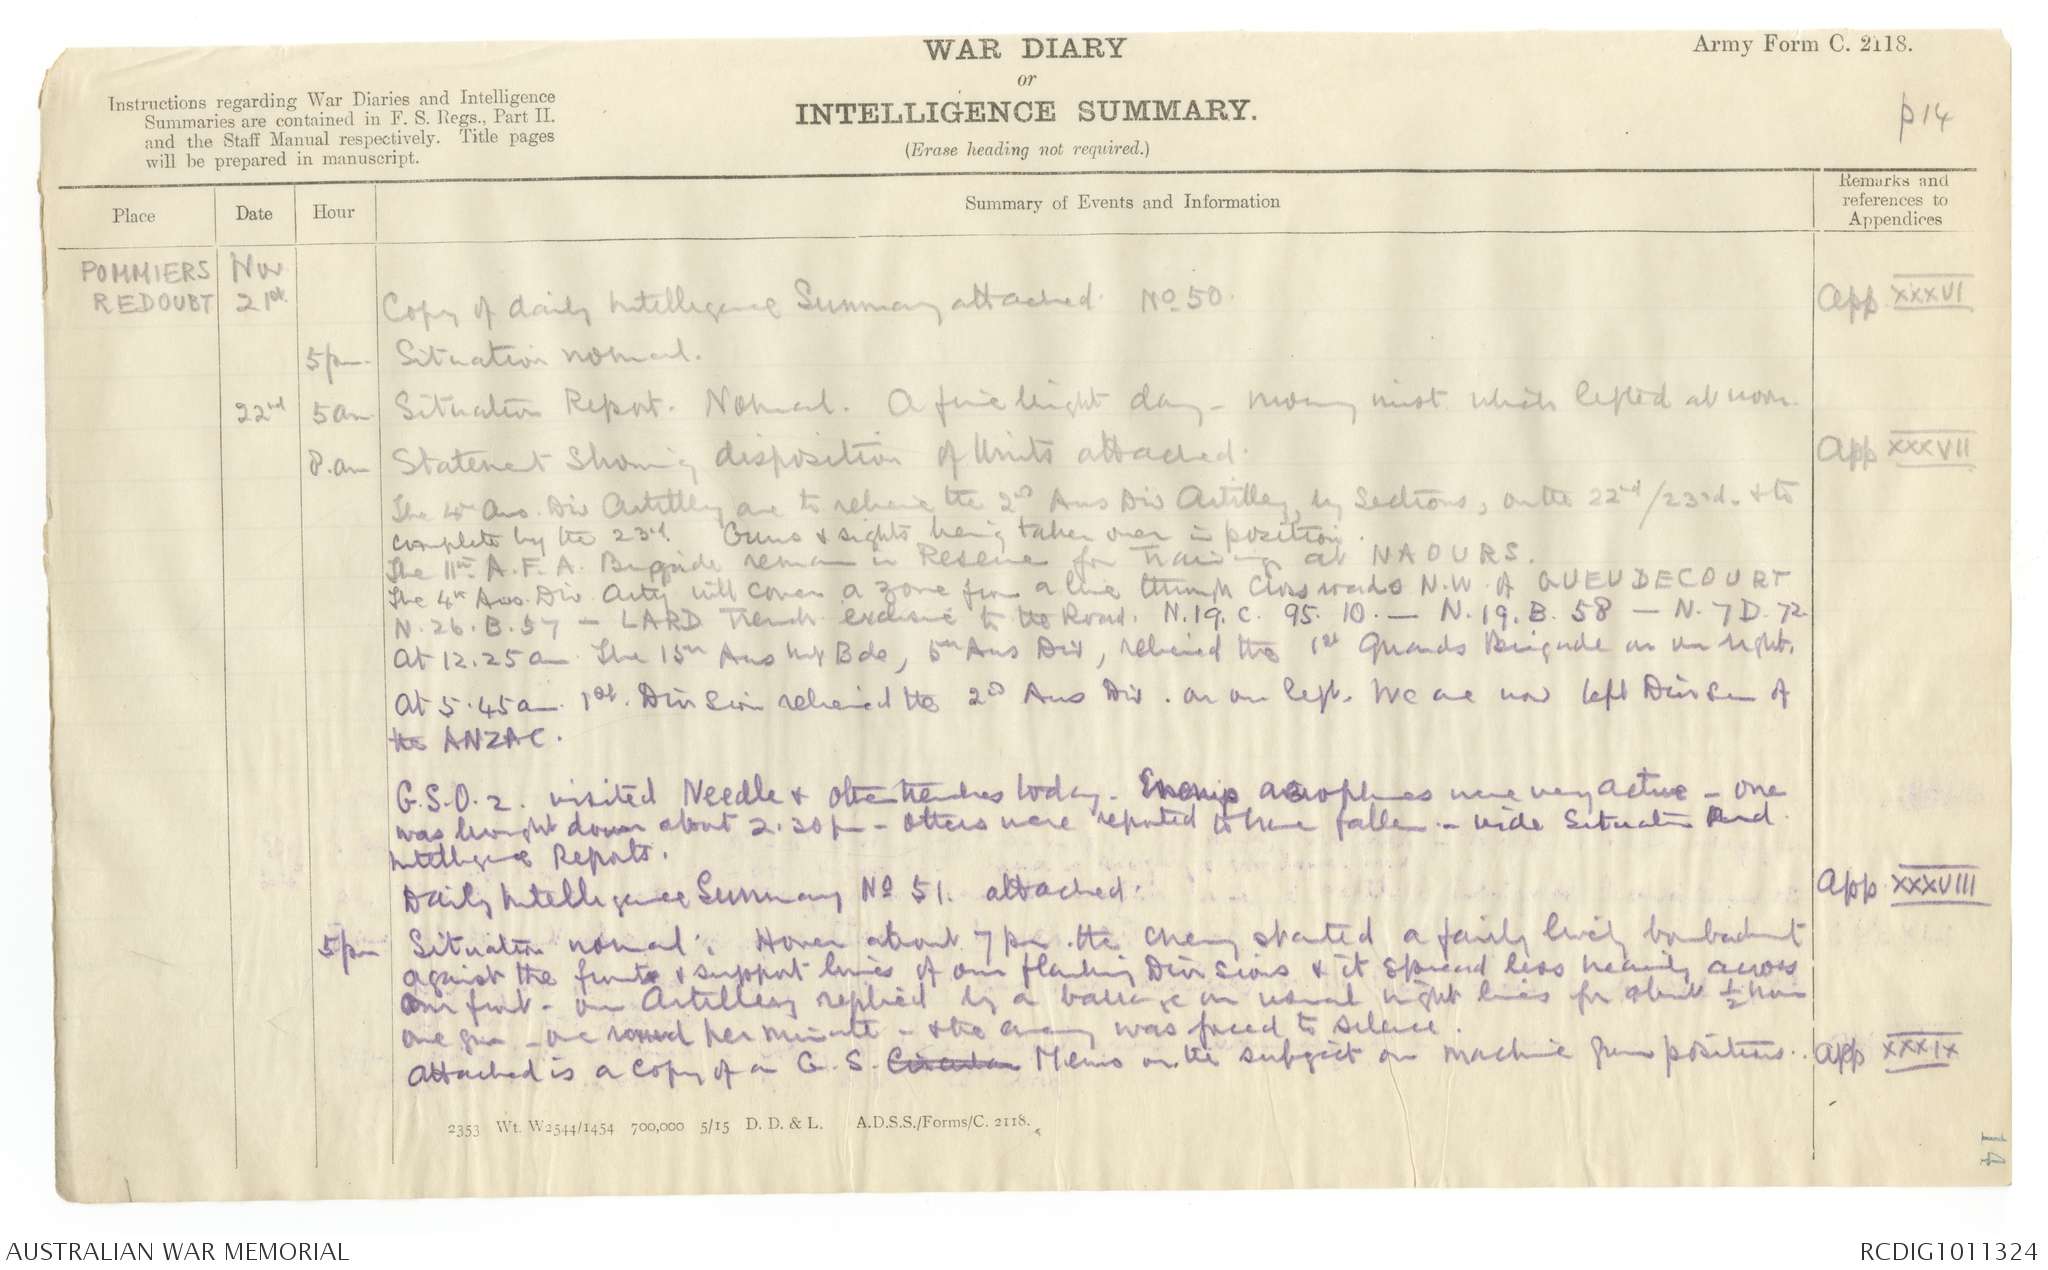 WAR DIARY
or
INTELLIGENCE SUMMARY.
(Erase heading not required.)
Army Form C. 2118.
p14
Instructions regarding War Diaries and Intelligence
Summaries are contained in F. S. Regs., Part II.
and the Staff Manual respectively. Title pages
will be prepared in manuscript.
Place
Date
Hour
Summary of Events and Information
Remarks and
references to
Appendices
POMMIERS Nov
REDOUBT 21st. Copy of daily Intelligence Summary attached. No 50. App XXXVI
5pm. Situation normal.
22nd 5am. Situation Report. Normal. A fine bright day - morning mist which lifted at noon.
8.am Statement showing disposition of Units attached. App XXXVII
The 4th Aus. Div Artillery are to relieve the 2nd Aus Div Artillery, by Sections, on the 22nd/23rd. & to
complete by the 23rd. Guns & sights being taken over in position.
The 11th. A.F.A. Brigade remain in Reserve for Training at NAOURS.
The 4th Aus. Div Arty will cover a zone from a line through Cross roads N.W. of GUEUDECOURT
N.26.B.57 - LARD Trench exclusive to the Road. N.19.C. 95.10. - N.19.B.58 - N.7D.72
At 12.25am The 15th Aus Inf Bde, 5th Aus Div, relieved the 1st Guards Brigade on our right.
At 5.45am. 1st. Division relieved the 2nd Aus Div. on our left. We are now left Division of
the ANZAC.
G.S.O.2. visited Needle & other trenches today. Enemy aeroplanes were very active - one
was brought down about 2.30pm - others were reported to have fallen - vide Situation and
Intelligence Reports.
Daily Intelligence Summary No 51. attached. App XXXVIII
5pm Situation normal. However about 7pm the enemy started a fairly lively bombardment
against the front & support lines of our flanking Divisions & it spread less heavily across
our front - our Artillery replied by a barrage on usual night lines for about ½ hour
one gun - one round per minute - & the enemy was forced to silence.
Attached is a copy of a G.S. Circular Memo on the subject on machine gun positions. App XXXIX
2353 Wt. W2544/1454 700,000 5/15 D. D. & L. A.D.S.S./Forms/C. 2118.
14
AUSTRALIAN WAR MEMORIAL
RCDIG1011324